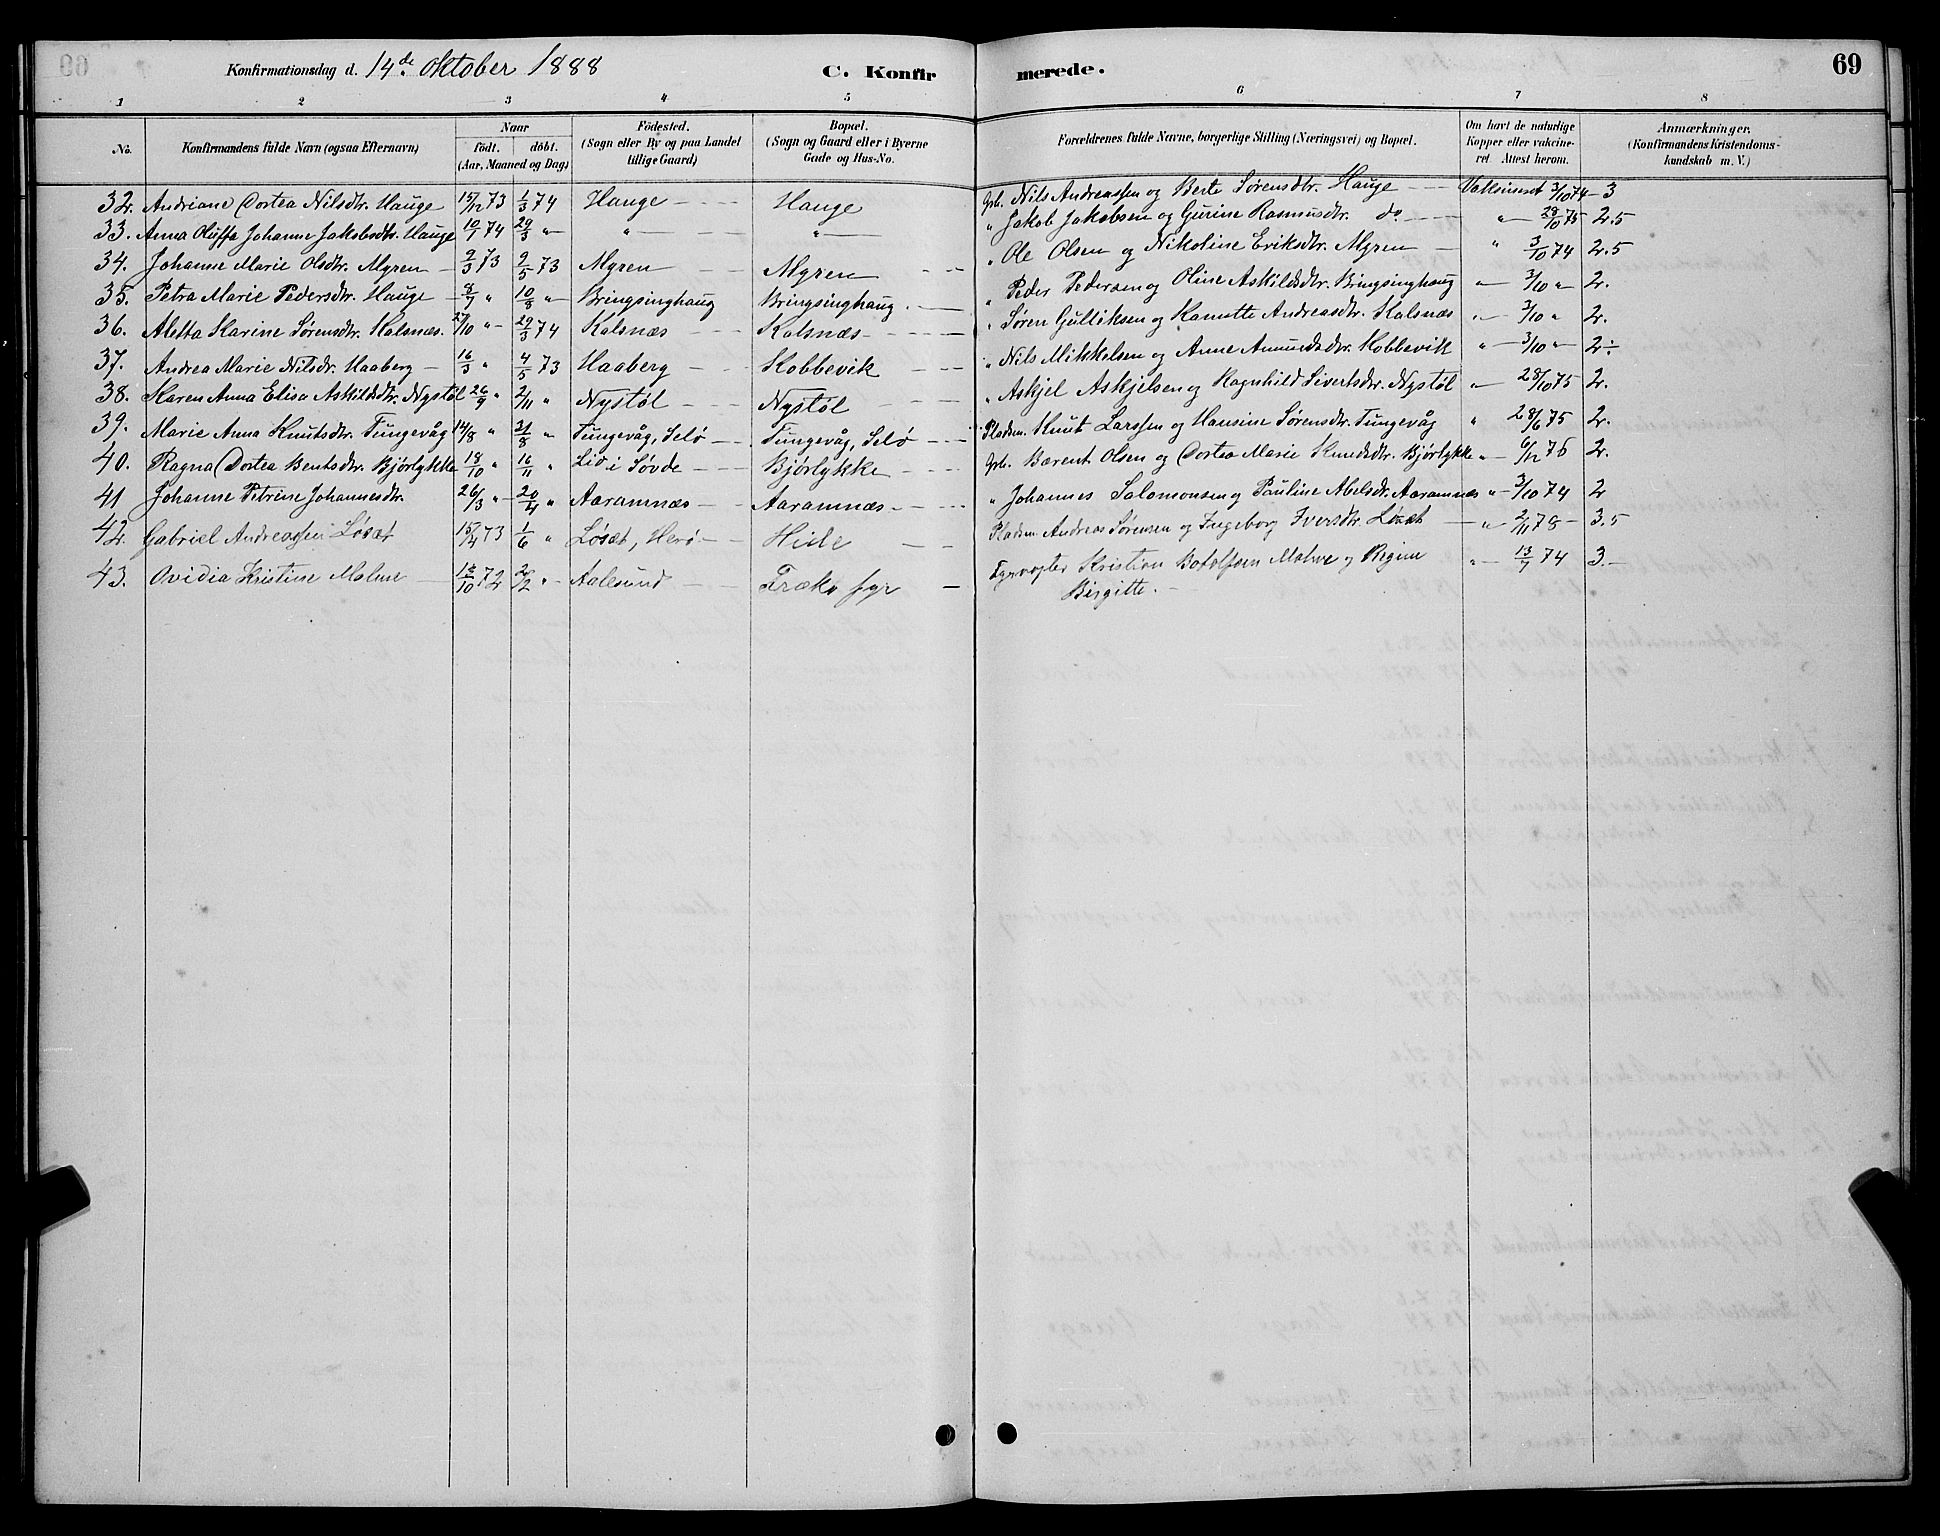 Konfirmationsdag d. 14de Oktober 1888 C. Konfirmerede. 69
1 2 3 4 5 6 7 8
No. Konfirmandens fulde Navn (ogsaa Efternavn) Naar födt. döbt. (Aar, Maaned og Dag) Födested. (Sogn eller By og paa Landet tillige Gaard) Bopæl. (Sogn og Gaard eller i Byerne Gade og Hus-No. Forældrenes fulde Navne, borgerlige Stilling (Næringsvei) og Bopæl. Om havt de naturlige Kopper eller vakcineret. Attest herom. Anmærkninger. (Konfirmandens Kristendomskundskab m. V.)
32. Andriane Dortea Nilsdtr. Hauge 15/12 73 1/3 74 Hauge Hauge Grb. Nils Andreassen og Berte Sørensdtr. Hauge Vaksineret 3/10 74 - 3
33. Anna Oluffa Johanne Jakobsdtr. Hauge 10/1 74 29/3 " " " " Jakob Jakobsen og Gurine Rasmusdtr. do " 28/10 75 2.5
34. Johanne Marie Olsdtr. Myren 2/3 73 2/5 73 Myren Myren " Ole Olsen og Nikoline Eriksdtr. Myren " 3/10 74 2.5
35. Petra Marie Pedersdtr. Hauge 8/7 " 10/8 " Bringsinghaug Bringsinghaug " Peder Pedersen og Oline Askildsdtr. Bringsinghaug " 3/10 " 2.
36. Aletta Karine Sørensdtr. Kalsnæs 27/10 " 29/3 74 Kalsnæs Kalsnæs " Søren Gulliksen og Kanutte Andreasdtr. Kalsnæs " 3/10 " 2.
37. Andrea Marie Nilsdr. Haaberg 16/3 " 4/5 73 Haaberg Kobbevik " Nils Mikkelsen og Anne Amundsdtr. Kobbevik " 3/10 " 2÷
38. Karen Anna Elisa Askildsdtr. Nystøl 26/9 " 2/11 " Nystøl Nystøl " Askjel Askjelsen og Ragnhild Sivertsdtr. Nystøl " 28/10 75 2.
39. Marie Anna Knutsdtr. Tungevåg 14/8 " 31/8 " Tungevåg, Selø Tungevåg, Selø Pladsm. Knut Larssen og Hansine Sørensdtr. Tungevåg " 28/6 75 2.
40. Ragna Dortea Bentsdtr. Bjørlykke 18/10 " 16/11 " Lid i Søvde Bjørlykke Grb. Bærent Olsen og Dortea Marie Knudsdtr. Bjørlykke " 6/12 76 2.
41 Johanne Petrine Johannesdtr. 26/3 " 20/4 " Aaramnæs Aaramnæs " Johannes Salomonsen og Pauline Abelsdtr. Aaramnæs " 3/10 74 2
42. Gabriel Andreassen Løsæt 15/4 73 1/6 " Løsæt, Herø Hide Pladsm Andreas Sørensen og Ingeborg Iversdtr. Løsæt " 2/11 78 3.5
43. Ovidia Kristine Malme 13/10 72 26/12 " Aalesund Fyrvogter Kristian Botolfsen Malme og Regine " 13/7 74 3.
Birgitte.